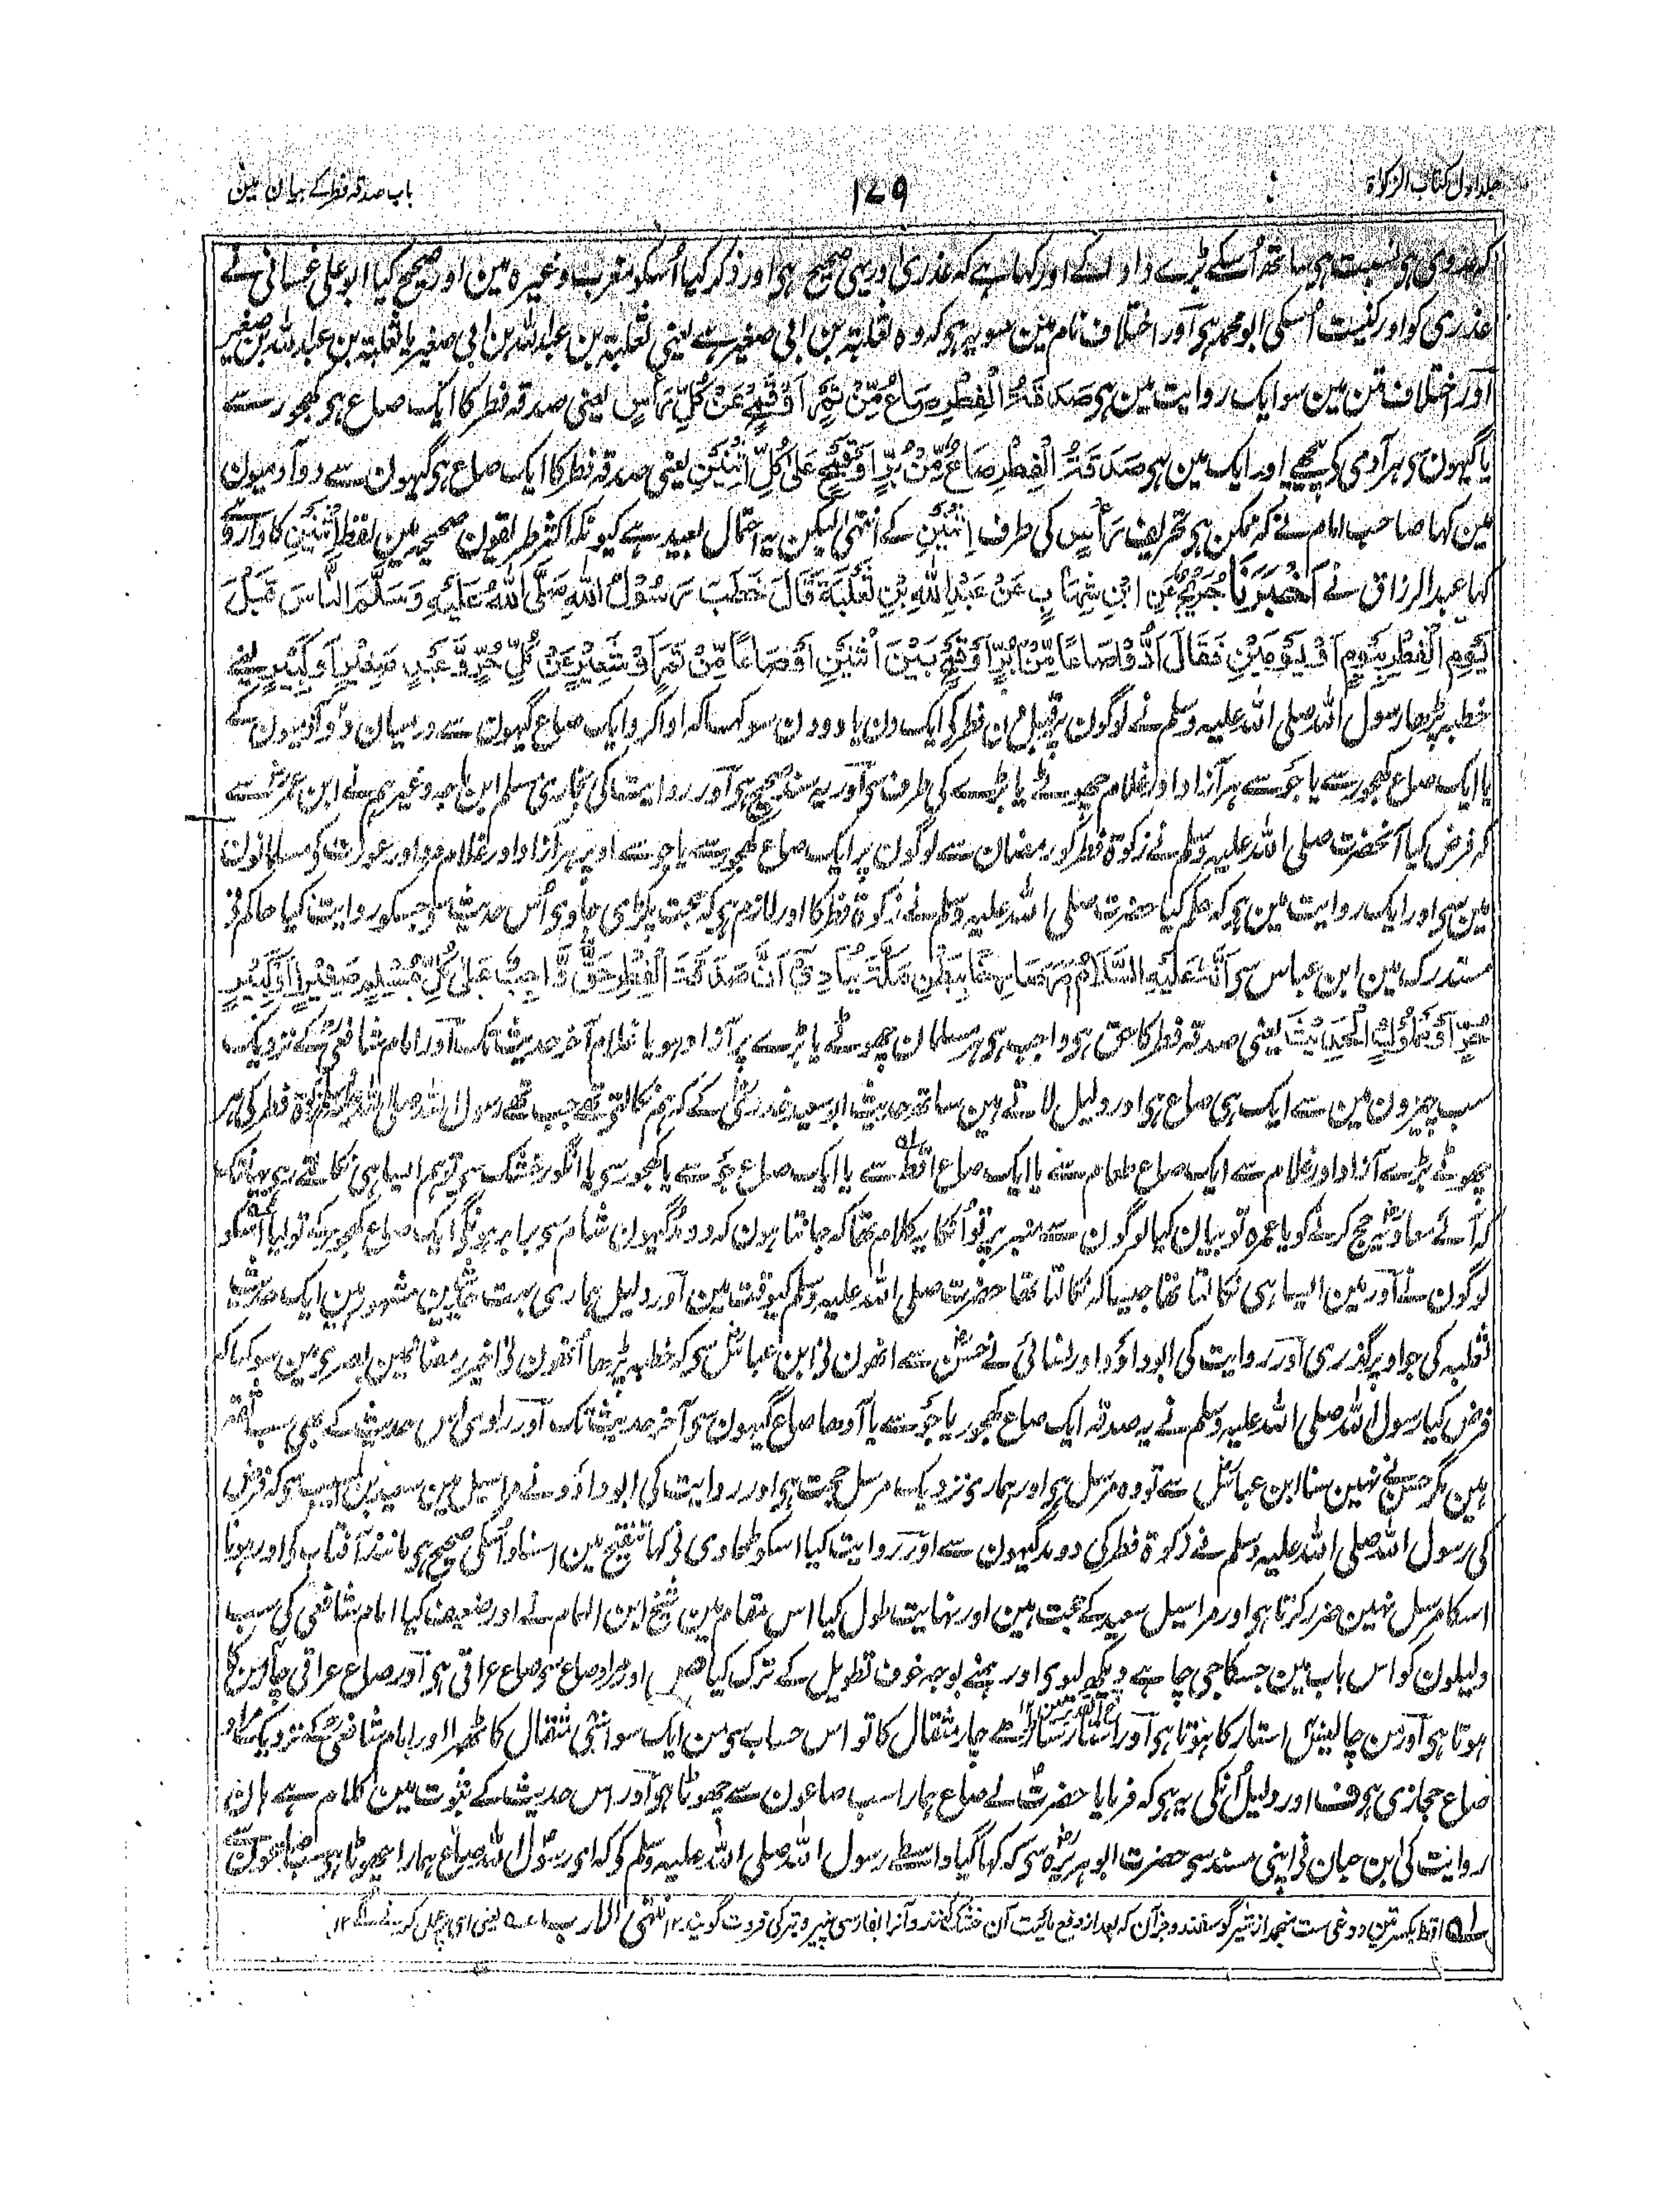 جلد اول کتاب الزکوٰۃ
۱۷۹
باب صدقہ فطر کے بیان مین
کہ عدوی ہی نسبت ہی ساتھ اُسکے بڑے دادا کے اور کہا ہے کہ عذری اور یہی صحیح ہی اور ذکر کیا اُسکو مغرب وغیرہ مین اور صحیح کیا ابو علی غسانی نے
عذری کو اور کنیت اُسکی ابو محمد ہی اور اختلاف نام مین سو یہ ہی کہ وہ ثعلبۃ بن ابی صغیر ہے یعنی ثعلبۃ بن عبد اللہ بن ابی صغیر یا ثعلبۃ بن عبد اللہ بن صغیر
اور اختلاف متن مین سو ایک روایت مین ہی صَدَقَۃُ الْفِطْرِ صَاعٌ مِّنْ تَمْرٍ اَوْ قَمْحٍ عَنْ کُلِّ رَأْسٍ یعنی صدقہ فطر کا ایک صاع ہی کھجور سے
یا گیہون سی ہر آدمی کے پیچھے اور ایک مین ہی صَدَقَۃُ الْفِطْرِ صَاعٌ مِّنْ بُرٍّ اَوْ قَمْحٍ عَلیٰ کُلِّ اثْنَیْنِ یعنی صدقہ فطر کا ایک صاع ہی گیہون سے دو آدمیون
مین کہا صاحب امام نے کہ ممکن ہی تحریف رَأْسٍ کی طرف اِثْنَیْنِ کے انتہی لیکن یہ احتمال بعید ہے کیونکہ اکثر طریقون صحیحہ مین لفظ اِثْنَیْنِ کا وارد ہے
کہا عبد الرزاق نے اَخْبَرَنَا جُرَیْجٌ عَنِ ابْنِ شِہَابٍ عَنْ عَبْدِ اللہِ بْنِ ثَعْلَبَۃَ قَالَ خَطَبَ رَسُوْلُ اللہِ صَلَّی اللہُ عَلَیْہِ وَسَلَّمَ النَّاسَ قَبْلَ
یَوْمِ الْفِطْرِ بِیَوْمٍ اَوْ یَوْمَیْنِ فَقَالَ اَدُّوْا صَاعًا مِّنْ بُرٍّ اَوْ قَمْحٍ بَیْنَ اثْنَیْنِ اَوْ صَاعًا مِّنْ تَمْرٍ اَوْ شَعِیْرٍ عَنْ کُلِّ حُرٍّ وَّ عَبْدٍ صَغِیْرٍ اَوْ کَبِیْرٍ یعنی
خطبہ پڑھا رسول اللہ صلی اللہ علیہ وسلم نے لوگون پر قبل دن فطر کی ایک دن یا دو دن سو کہا کہ ادا کرو ایک صاع گیہون سے درمیان دو آدمیون کے
یا ایک صاع کھجور سے یا جَو سے ہر آزاد اور غلام چھوٹے یا بڑے کی طرف سی اور یہ سند صحیح ہی اور روایت کی بخاری مسلم ابن ماجہ وغیرہم نے ابن عمر سے
کہ فرض کیا آنحضرت صلی اللہ علیہ وسلم نے زکوٰۃ فطر کو رمضان سے لوگون پر ایک صاع کھجور سے یا جَو سے اوپر ہر آزاد اور غلام مرد اور عورت کو مسلمانون
مین سی اور ایک روایت مین ہی کہ حکم کیا حضرت صلی اللہ علیہ وسلم نے زکوٰۃ فطر کا اور لازم ہی کہ حجت پکڑی جاوی اُس حدیث سے جسکو روایت کیا حاکم نے
مستدرک مین ابن عباس سی اَنَّہٗ عَلَیْہِ السَّلَامُ اَمَرَ صَارِخًا بِبَطْنِ مَکَّۃَ یُنَادِیْ اَنَّ صَدَقَۃَ الْفِطْرِ حَقٌّ وَّاجِبٌ عَلیٰ کُلِّ مُسْلِمٍ صَغِیْرٍ اَوْ کَبِیْرٍ
حُرٍّ اَوْ مَمْلُوْکٍ الْحَدِیْثَ یعنی صدقہ فطر کا حق ہی واجب ہی ہر مسلمان چھوٹے یا بڑے پر آزاد ہو یا غلام آخر حدیث تک اور امام شافعیؒ کے نزدیک
سب چیزون مین سے ایک ہی صاع ہی اور دلیل لاتے ہین ساتھ حدیث ابو سعید خدریؓ کے کہ ہم نکالتی تھے جب تھے رسول اللہ صلی اللہ علیہ وسلم زکوٰۃ فطر کی ہر
چھوٹے بڑے آزاد اور غلام سے ایک صاع طعام سے یا ایک صاع اقط سے یا ایک صاع جَو سے یا کھجور سی یا انگور خشک سی تو ہم ایسا ہی نکالتے رہی یہانتک
کہ آئے معاویہؓ حج کرنے کو یا عمرہ تو بیان کیا لوگون سے منبر پر تو اُنکا یہ کلام تھا کہ جانتا ہون کہ دو مُد گیہون شام سی برابر ہونگی ایک صاع کھجور کے تو لیا اُسکو
لوگون نے اور مین ایسا ہی نکالتا تھا جیسا کہ نکالتا تھا حضرت صلی اللہ علیہ وسلم کیوقت مین اور دلیل ہماری بہت حدیثین مشہور مین ایک حدیث
ثعلبہ کی جو اوپر گذری اور روایت کی ابو داؤد اور نسائی نے حسنؒ سے انھون نی ابن عباسؓ سی کہ خطبہ پڑھا اُنھون نی اخیر رمضا نمین بصرہ مین سو کہا کہ
فرض کیا رسول اللہ صلی اللہ علیہ وسلم نے یہ صدقہ ایک صاع کھجور یا جَو سے یا آدھا صاع گیہون سی آخر حدیث تک اور راوی اس حدیث کے بھی سب ثقہ
ہین مگر حسن نے نہین سنا ابن عباسؓ سے تو وہ مرسل ہی اور ہماری نزدیک مرسل حجت ہی اور روایت کی ابو داؤد نے مراسیل مین سعید بن مسیب سی کہ فرض
کی رسول اللہ صلی اللہ علیہ وسلم نے زکوٰۃ فطر کی دو مد گیہون سے اور روایت کیا اسکو طحاوی نی کہا تنقیح مین اسناد اُسکی صحیح ہی مانند آفتاب کی اور ہونا
اسکا مرسل نہین ضرر کرتا ہی اور مراسیل سعید کے حجت ہین اور نہایت طول کیا اس مقام مین شیخ ابن الہمام نے اور ضعیف کیا امام شافعی کی سب
دلیلون کو اس باب مین جسکا جی چاہے دیکھ لیوی اور ہمنے بوجہ خوف تطویل کے ترک کیا ص اور مراد صاع سی صاع عراقی ہی اور صاع عراقی چار من کا
ہوتا ہی اور من چالیس استار کا ہوتا ہی اور استار ساڑھے چار مثقال کا تو اس حساب سی من ایک سو اسی مثقال کا ٹھہرا اور امام شافعیؒ کے نزدیک مراد
صاع حجازی ہی ف اور دلیل اُنکی یہ ہی کہ فرمایا حضرتؐ نے صاع ہمارا سب صاعون سے چھوٹا ہی اور اس حدیث کے ثبوت مین کلام ہے ہان
روایت کی ابن حبان نی اپنی مسند سی حضرت ابو ہریرہؓ سی کہ کہا گیا واسطے رسول اللہ صلی اللہ علیہ وسلم کو کہ ای رسول اللہ صاع ہمارا چھوٹا ہی سب صاعون سے
یعنی اسی پر عمل کرنے لگے ۱۲